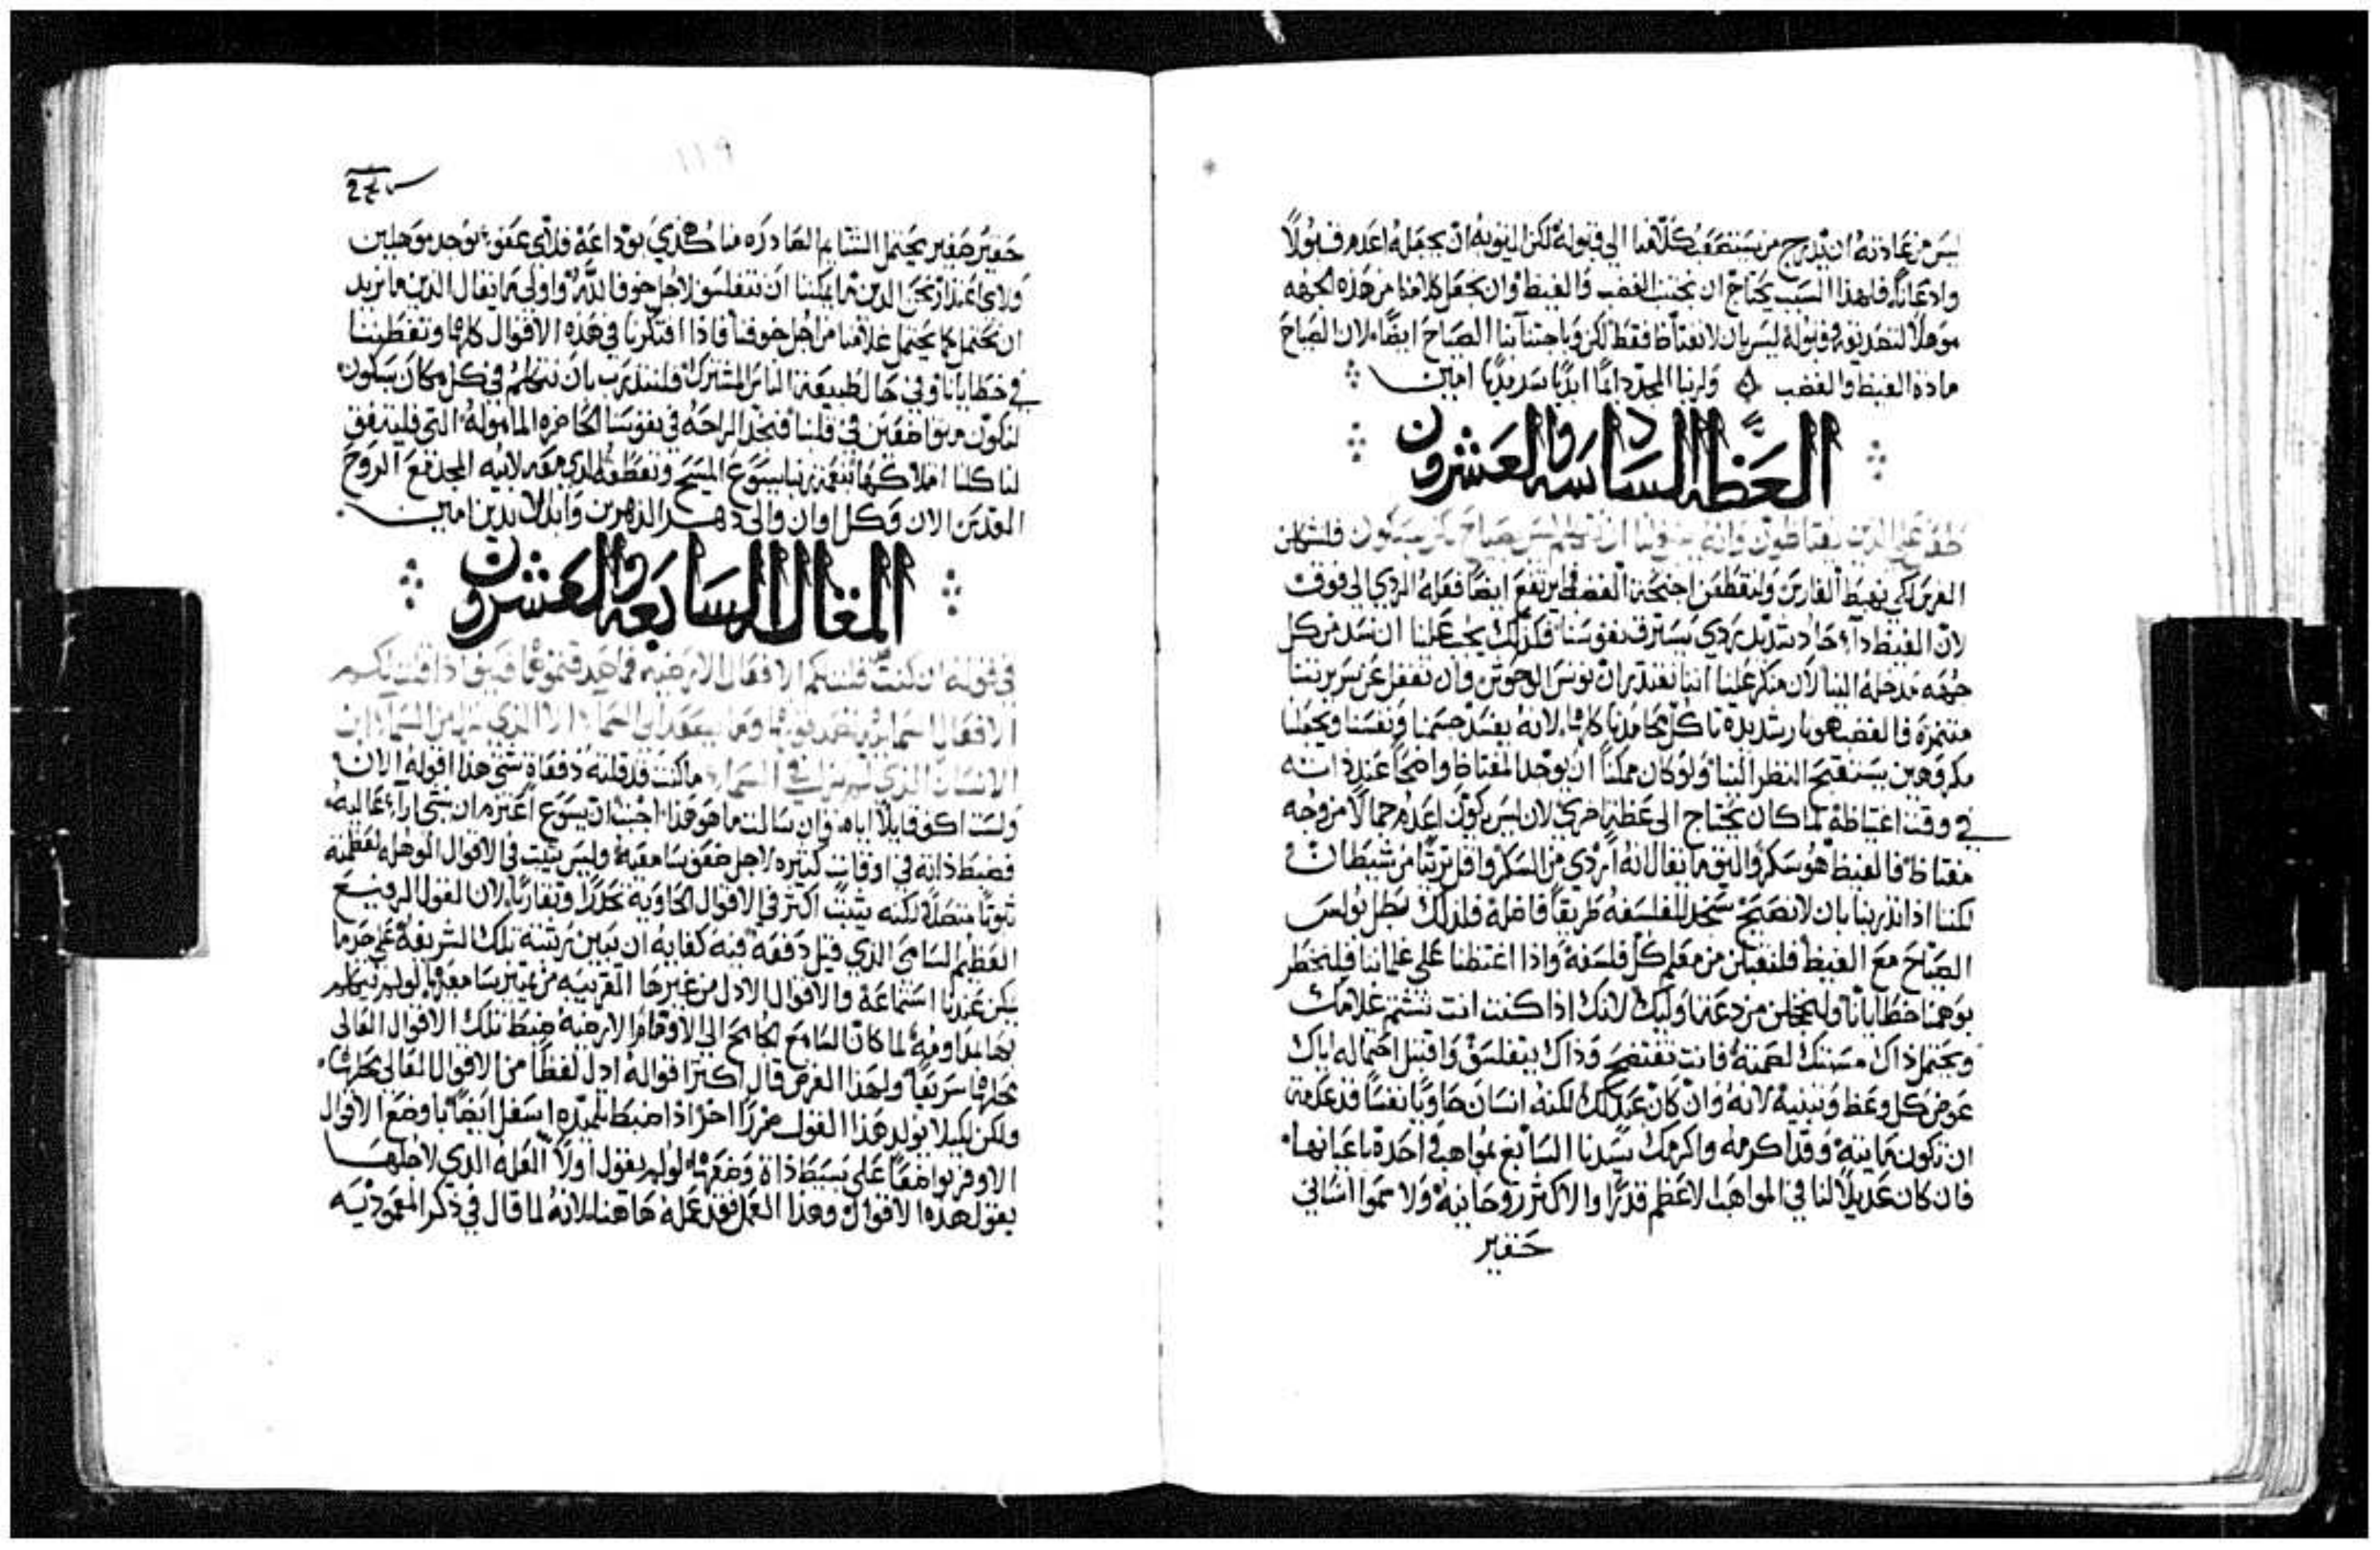 ليس من عادته ان يدرج من يستصعب كلامنا الى قبوله لكن اليق به ان يجعله اعدم قبولاً
واذعاناً فلهذا السبب يحتاج ان نجتنب الغضب والغيظ وان نجعل كلامنا من هذه الجهه
موهلاً لتصديقه وقبوله ليس بان لا نغتاظ فقط لكن وباجتنابنا الصياح ايضاً لان الصياح
مادة الغيظ والغضب ولربنا المجد دايمًا ابديًا سرمديًا امين
العظة السادسه والعشرون
عظه على الذين يغتاظون وانه ينبغي لنا ان نتكلم ليس بصياح لكن بسكون فلنشكلن
الفرس لكي نهبط الفارس ولنقطعن اجنحة الغضب فما يرتفع ايضاً فعله الردي الى فوق
لان الغيظ داء حاد شديد ردي يسترق نفوسنا فلذلك يجب علينا ان نسد من كل
جهه مدخله الينا لان منكر علينا اننا نقتدر ان نونس الوحوش وان نغفل عن سريرتنا
متنمرة فالغضب هو نار شديده تاكل محامدنا كلها لانه يفسد جسمنا ونفسنا ويجعلنا
مكروهين يستقبح النظر الينا ولو كان ممكناً ان يوجد المغتاظ واضحاً عند ذاته
في وقت اغتياظه لما كان يحتاج الى عظة اخرى لان ليس يكون اعدم جمالاً من وجه
مغتاظ فالغيظ هو سكر واليق ما يقال انه اردي من السكر واقل ترثيًا من شيطان
لكننا اذا اندربنا بان لا نصيح سنجد للفلسفه طريقاً فاضله فلذلك بطل بولس
الصياح مع الغيظ فلنقبلن من معلم كل فلسفة واذا اغتظنا على غلماننا فلنخطر
بوهمنا خطايانا ولنخجلن من دعة اوليك لانك اذا كنت انت تشتم غلامك
ويحتمل ذاك مسبتك لصمته فانت تفتضح وذاك يتفلسف واقتبل احتماله اياك
عوض كل وعظ وتنبيه لانه وان كان عبدًا لك لكنه انسان حاويًا نفسًا قد عدمت
ان تكون مايته وقد اكرمه واكرمك سيدنا السابغ بمواهب واحدة باعيانها
فان كان عديلاً لنا في المواهب الاعظم قدرًا والاكثر روحانيه ولا سمو انساني
حقير
١١٩
حقير صغير يحتمل الشتايم الصادره منا كذي بوداعة فلاي عفو نوجد موهلين
ولاي اعتذار نحن الذين ما يمكننا ان نتفلسف لاجل خوف الله واولى ما يقال الذين ما نريد
ان نحتمل كما يحتمل غلامنا من اجل خوفنا فاذا افتكرنا في هذه الاقوال كلها وتفطنّنا
في خطايانا وفي حال طبيعة الناس المشترك فلنتدرب بان نتكلم في كل مكان بسكون
لنكون متواضعين في قلبنا فنجد الراحة في نفوسنا الحاضره والماموله التي فليتفق
لنا كلنا امتلاكها بنعمة ربنا يسوع المسيح وتعطفه الذي معه لابيه المجد مع الروح
القدس الان وكل اوان والى دهر الداهرين وابد الابدين امين
المقالة السابعه والعشرون
في قوله ان كنت قلت لكم الافعال الارضيه فما صدقتموها فكيف اذا قلت لكم
الافعال السمايية تصدقونها وما يصعد الى السماء الا الذي نزل من السماء ابن
الانسان الذي لم يزل في السماء ماكنت قد قلته دفعات شتى هذا اقوله الان
ولست اكف قايلاً اياه وان سالت ما هو هذا اجبت ان يسوع اعتزم ان ينتحي آراء عاليه
فضبط ذاته في اوقات كثيره لاجل ضعف سامعيه وليس يثبت في الاقوال الموهله لعظمته
ثبوتًا متصلاً لكنه يثبت اكثر في الاقوال الحاوية تحدرًا وتقاربًا لان القول الرفيع
العظيم السامي الذي قيل دفعه فيه كفايه ان يبين رتبته تلك الشريفه على حد ما
يمكن عندنا استماعه والاقوال الادل من غيرها القريبه من تمييز سامعيها لو لم يتكلم
بها بمداومه لما كان السامع الجامح الى الاوهام الارضيه ضبط تلك الاقوال العالى
محلها سريعاً ولهذا الغرض قال اكثر اقواله ادل لفظًا من الاقوال العالى محلها
ولكن لكيلا يولد هذا القول ضررًا اخر اذا ضبط تلميذه اسفل ايضاً ما وضع الاقوال
الاوفر تواضعًا على بسيط ذاة وضعها لو لم يقول اولاً العله الذي لاجلها
يقول هذه الاقوال وهذا العمل فقد عمله هاهنا لانه لما قال في ذكر المعموديه